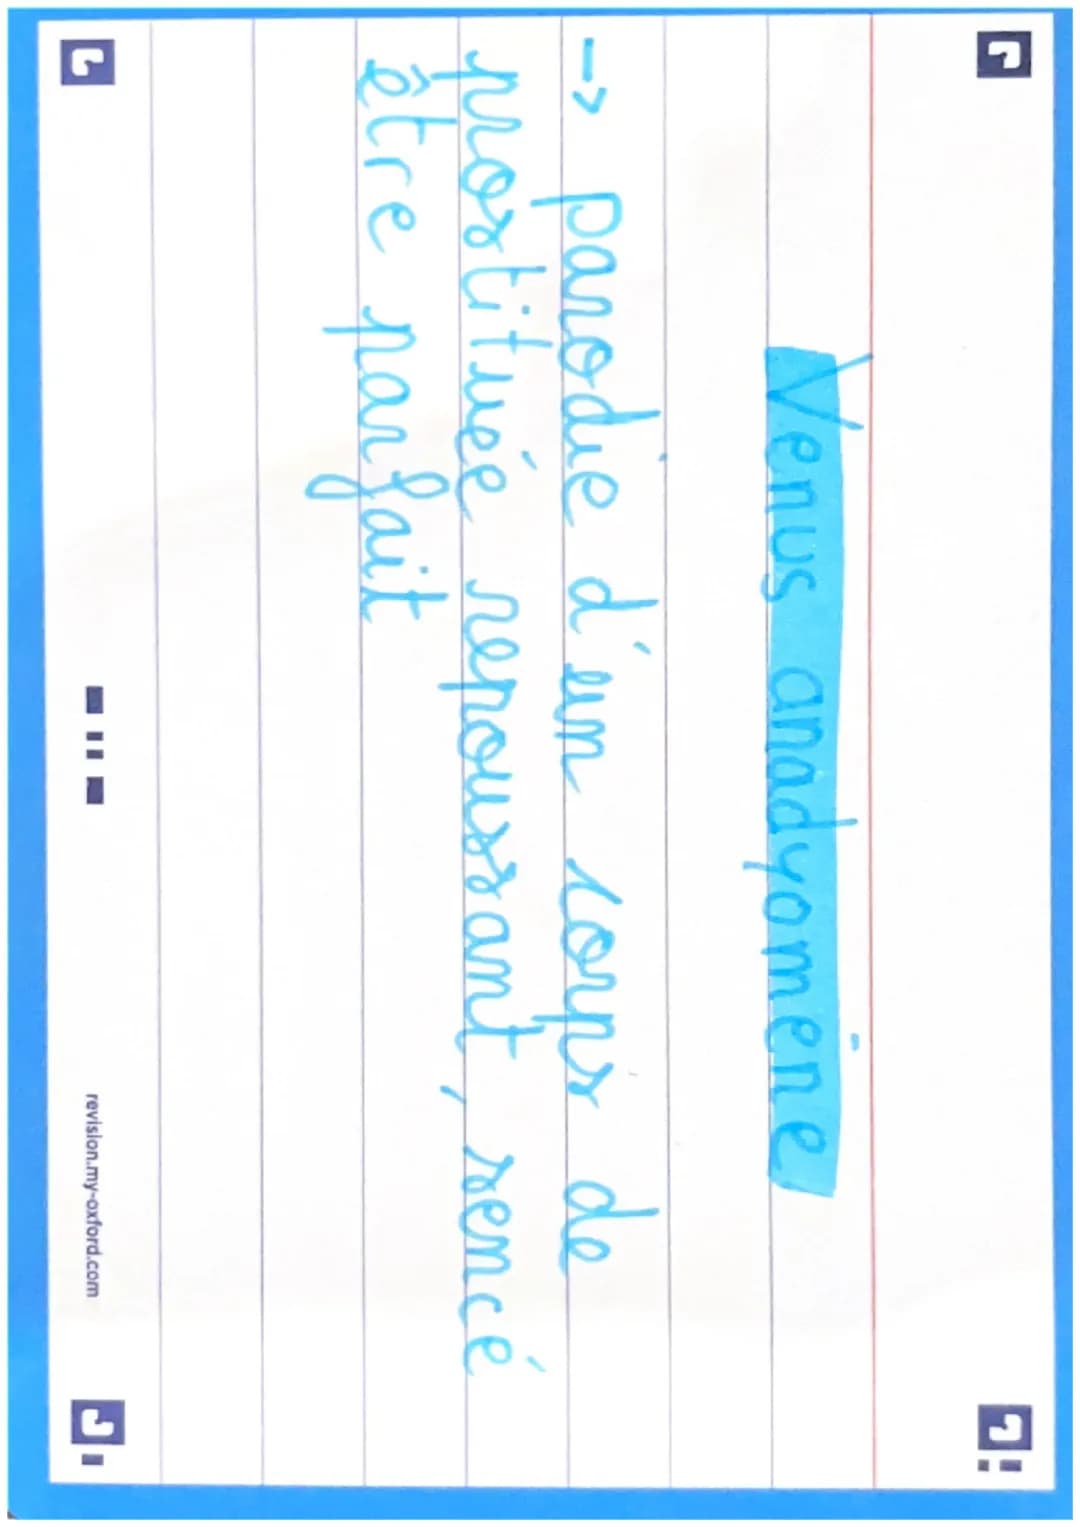 Venus anadyomène
→ parodie d'un corps de
prostituée repoussant, sencé
être parfait
revision.my-oxford.com